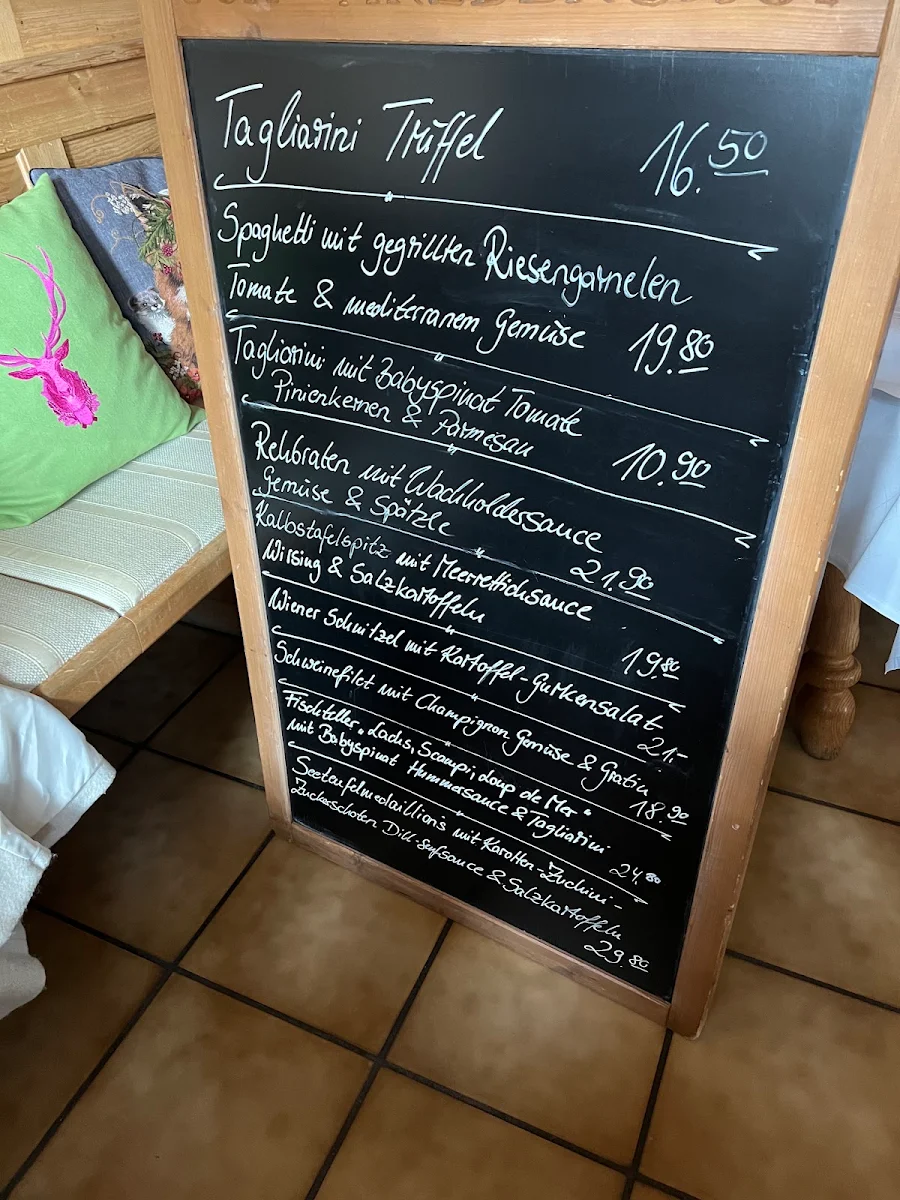 Tagliarini Trüffel 16.50
Spaghetti mit gegrillten Riesengarnelen
Tomate & mediterranem Gemüse 19.80
Tagliarini mit Babyspinat Tomate
Pinienkernen & Parmesan 10.90
Rehbraten mit Wachholdersauce
Gemüse & Spätzle 21.90
Kalbstafelspitz mit Meerrettichsauce
Wirsing & Salzkartoffeln 19.80
Wiener Schnitzel mit Kartoffel-Gurkensalat
21.-
Schweinefilet mit Champignon Gemüse & Gratin
18.90
Fischteller "Lachs, Scampi, Loup de Mer"
mit Babyspinat Hummersauce & Tagliarini
24.80
Seeteufelmedaillions mit Karotten-Zuchini-
Zuckerschoten Dill-Senfsauce & Salzkartoffeln
29.80